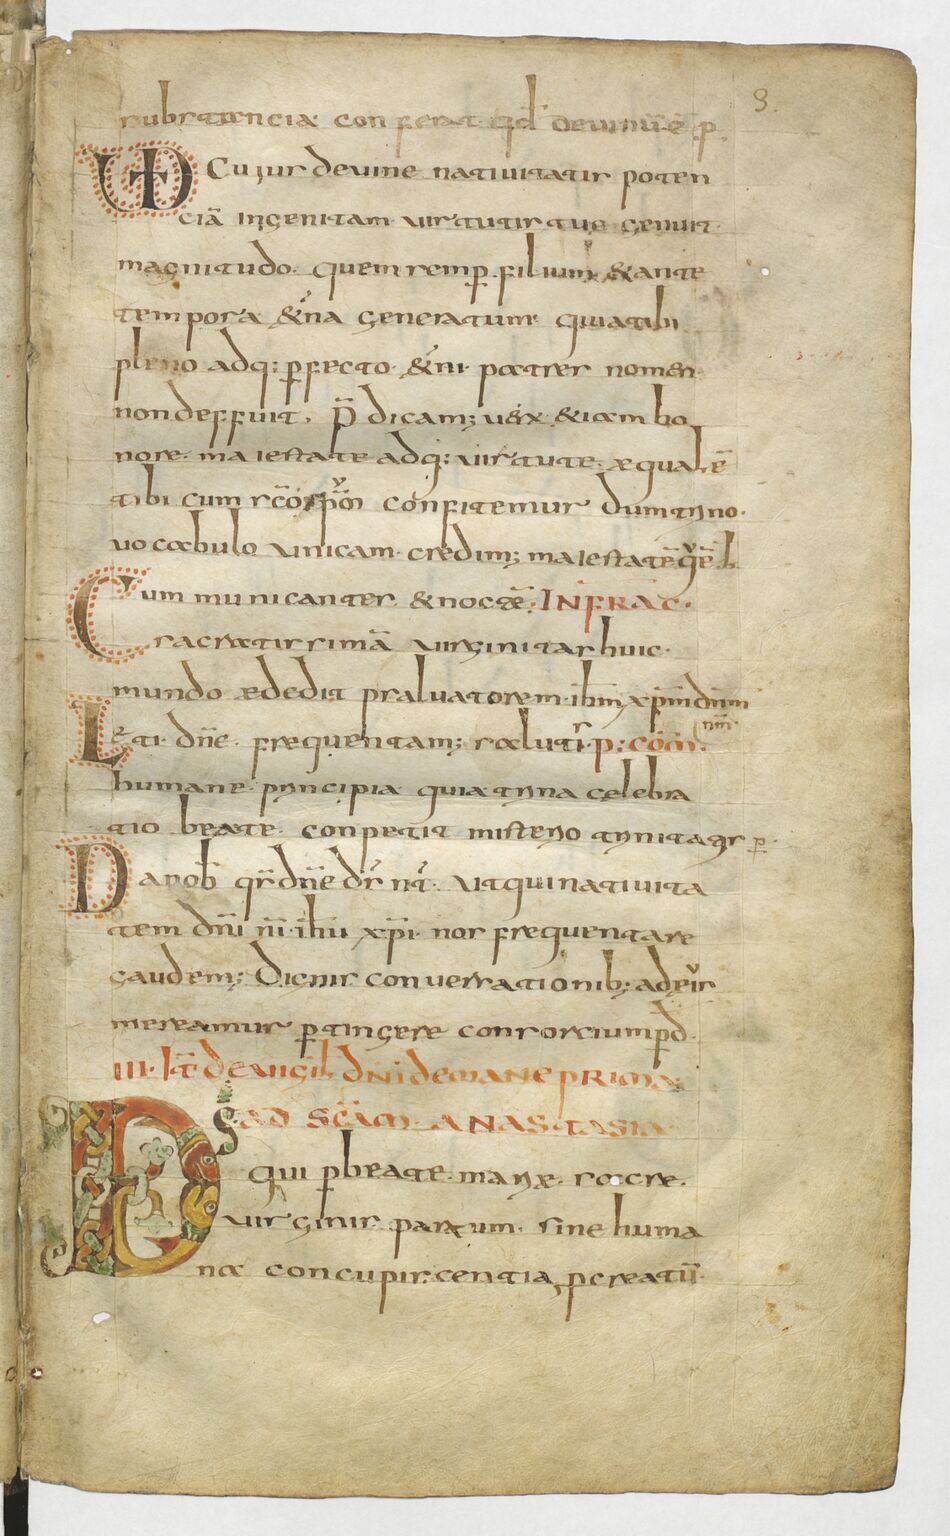 3.
substancia conferat qd devinū ē p
VD Cujus devine nativitatis poten
ciā ingenitam virtutis tue genuit
magnitudo. quem semp filium &ante
tempora &̄na generatum. quia tibi
pleno adq: p̄fecto &̄ni. patres nomen
non deffuit. P̄dicam; u&̄ax &iam ho
nore. maiestate adq: virtute. æqualē
tibi cum sc̄o sp̄u confitemur dum tryno.
vocabulo unicam. credim; maiestatē quē l
Cummunicantes &noctē. INFRA C.
sacratissimā virginitas huic.
mundo ædedit p saluatorem. ih̄m xp̄m dn̄m
nm̄.
Leti. dn̄e. frequentam; salutis p: COM.
humane. pryncipia quia tryna celebra
tio beate. conpetit misteryo trynitatys p
Da nob̄ qs̄ dn̄e ds̄ nt̄. ut qui nativita
tem dn̄i n̄i. ih̄u xp̄i nos frequentare
gaudem; Dignis conversationib; ad eius
mereamur p̄tingere consorcium p̄d.
III. IT̄ DE VIGIL DNI DE MANE PRIMA
AD SCĀM ANASTASIA
DS qui p̄ beate. maryæ. sacræ.
virginis partum. sine huma
na concupiscentia, pcreatū.